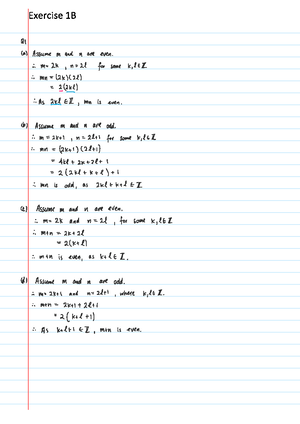 Exercise 1B
Q1
(a) Assume m and n are even.
∴ m = 2k , n = 2l for some k, l ∈ ℤ
∴ mn = (2k)(2l)
= 2(2kl)
∴ As 2kl ∈ ℤ , mn is even.
(b) Assume m and n are odd.
∴ m = 2k+1 , n = 2l+1 for some k, l ∈ ℤ
∴ mn = (2k+1)(2l+1)
= 4kl + 2k + 2l + 1
= 2(2kl + k + l) + 1
∴ mn is odd, as 2kl + k + l ∈ ℤ
(c) Assume m and n are even.
∴ m = 2k and n = 2l , for some k, l ∈ ℤ
∴ m+n = 2k + 2l
= 2(k+l)
∴ m+n is even, as k+l ∈ ℤ.
(d) Assume m and n are odd.
∴ m = 2k+1 and n = 2l+1 , where k, l ∈ ℤ.
∴ m+n = 2k+1 + 2l+1
= 2(k+l+1)
∴ As k+l+1 ∈ ℤ , m+n is even.